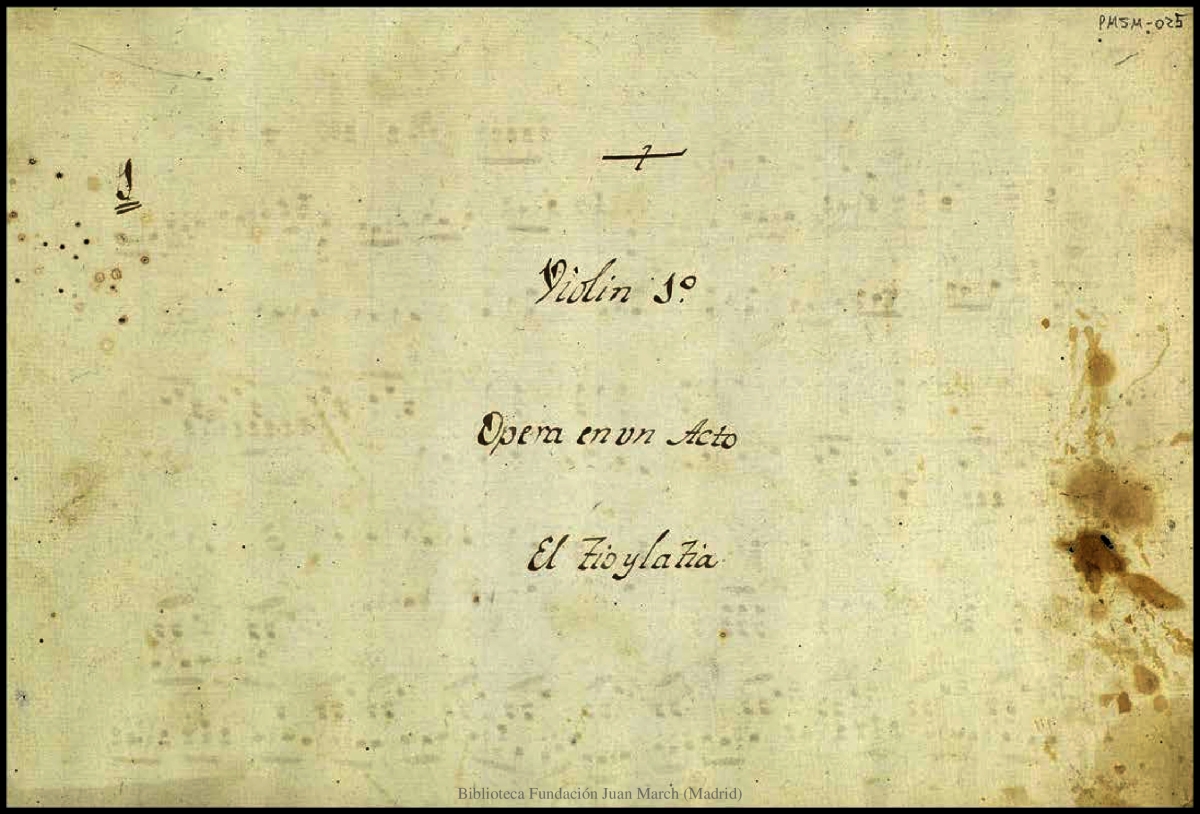 PMSM-025
1
Violin 1º
Opera en vn Acto
El Tio y la Tia
Biblioteca Fundación Juan March (Madrid)